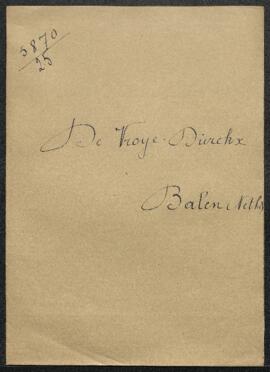 5870
25
De Vroye-Dierckx
Balen Neth